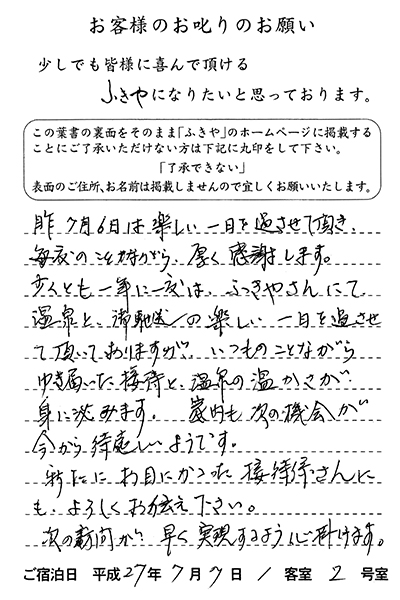 お客様のお叱りのお願い
少しでも皆様に喜んで頂ける
ふきやになりたいと思っております。
この葉書の裏面をそのまま「ふきや」のホームページに掲載する
ことにご了承いただけない方は下記に丸印をして下さい。
「了承できない」
表面のご住所、お名前は掲載しませんので宜しくお願いいたします。
昨7月6日は楽しい一日を過させて頂き、
毎度のことながら、厚く感謝します。
少くとも一年に一度は、ふきやさんにて
温泉と、御馳走の楽しい一日を過させ
て頂いておりますが、いつものことながら
ゆき届いた接待と、温泉の温かさが
身に沁みます。家内も次の機会が
今から待遠しいようです。
新たにお目にかかった接待係さんに
も、よろしくお伝え下さい。
次の訪問が早く実現するように心掛けます。
ご宿泊日 平成27年7月7日 / 客室 2 号室